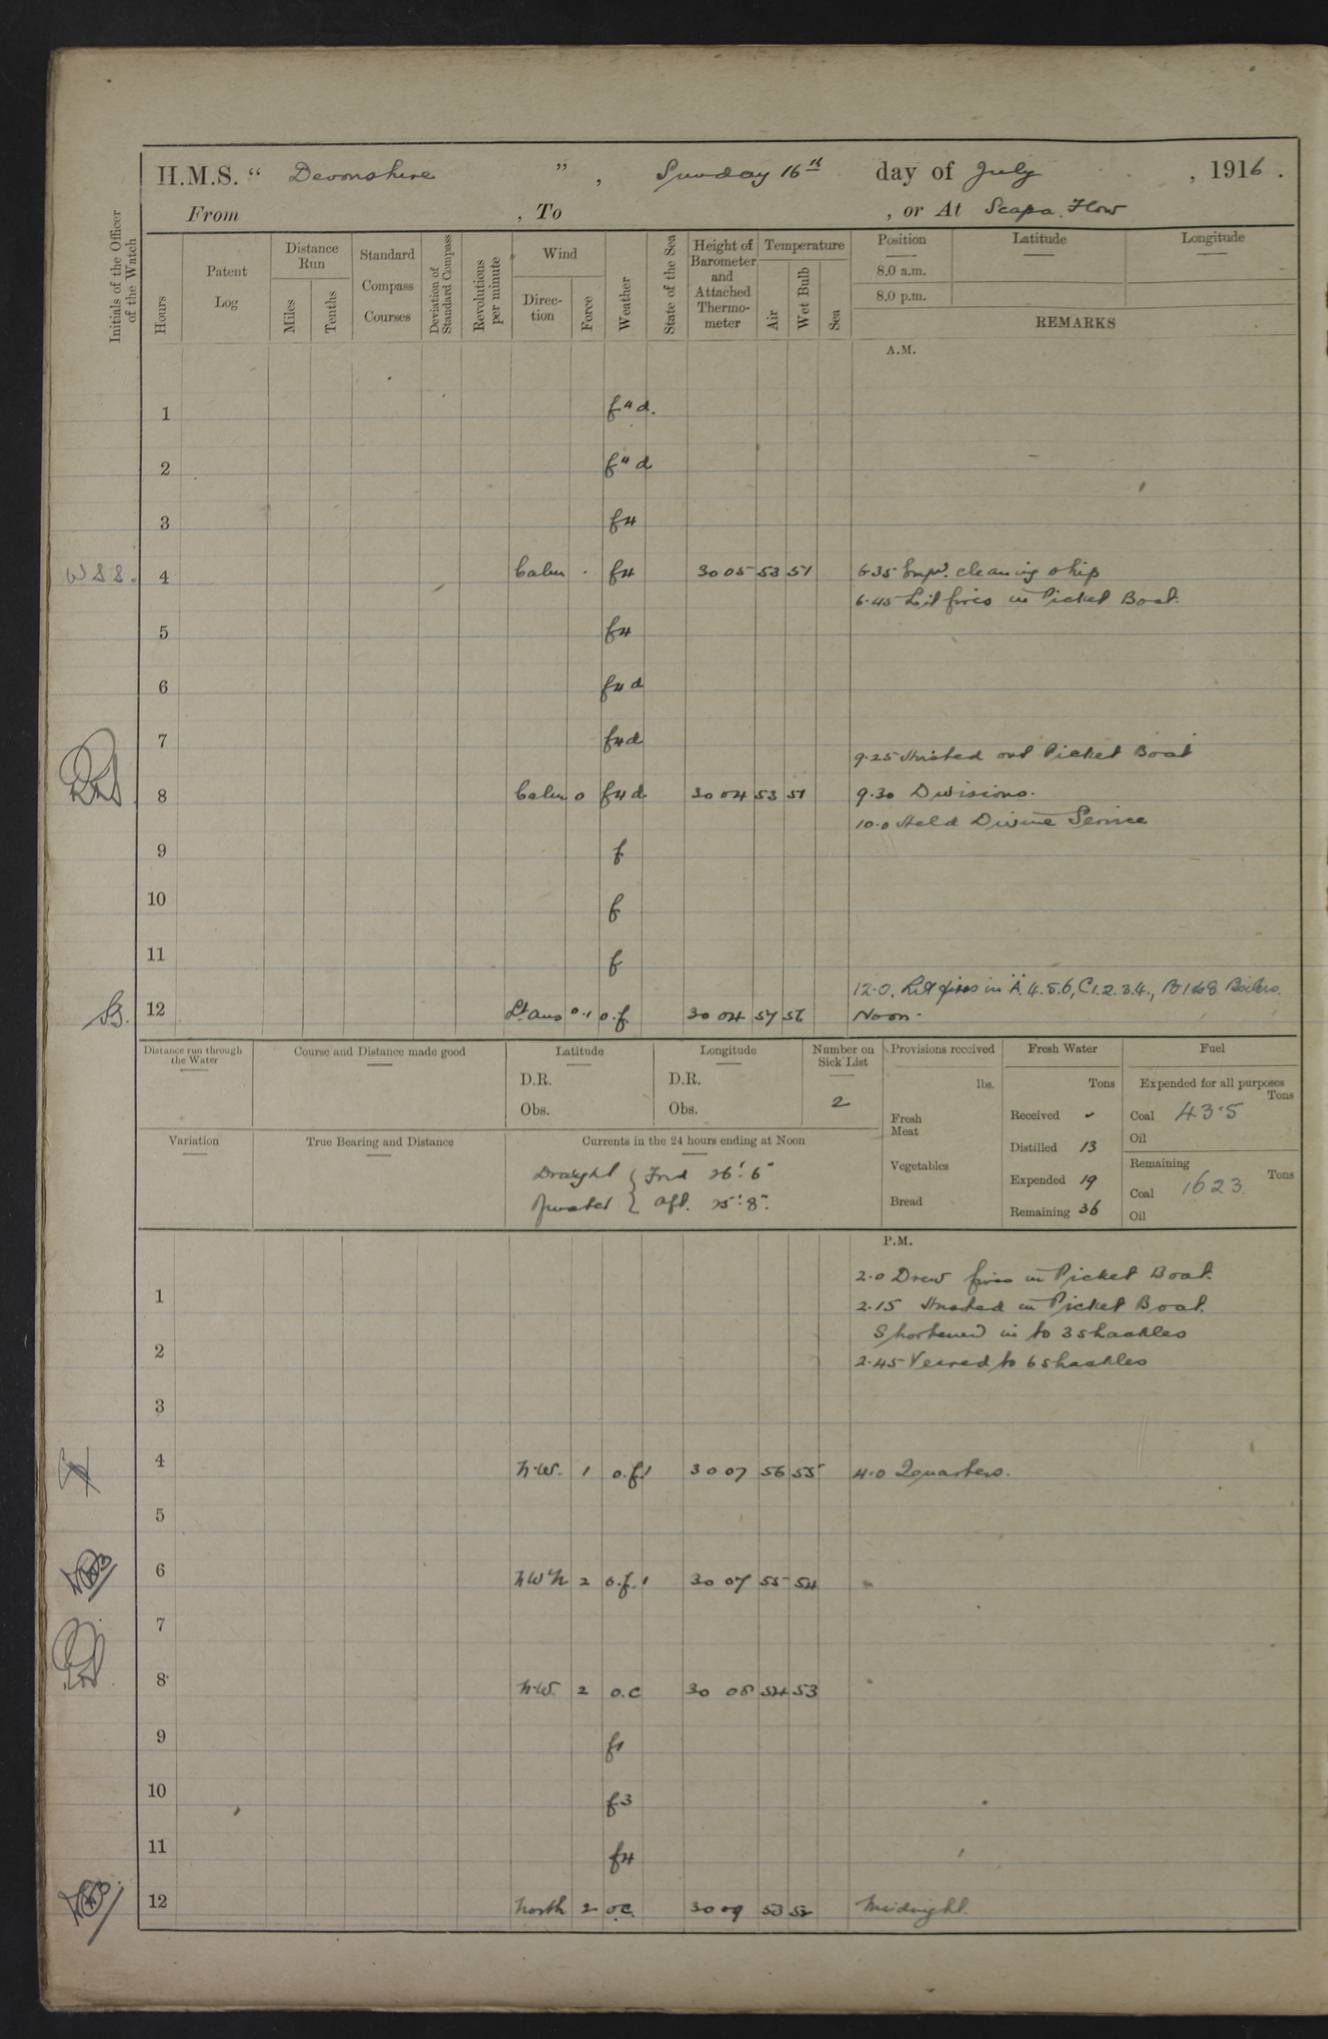 H.M.S. “ Devonshire ” , Sunday 16th day of July , 1916 .
From , To , or At Scapa Flow
Initials of the Officer of the Watch
Hours
Patent Log
Distance Run
Miles
Tenths
Standard Compass Courses
Deviation of Standard Compass
Revolutions per minute
Wind
Direction
Force
Weather
State of the Sea
Height of Barometer and Attached Thermometer
Temperature
Air
Wet Bulb
Sea
Position Latitude Longitude
8.0 a.m.
8.0 p.m.
REMARKS
A.M.
1 f4 d.
2 f4 d
3 f4
W S S. 4 Calm . f4 30 05 53 51 6.35 Empd. cleaning ship
6.45 Lit fires in Picket Boat.
5 f4
6 f4 d
7 f4 d
9.25 Hoisted out Picket Boat
8 Calm 0 f4 d 30 04 53 51 9.30 Divisions.
10.0 Held Divine Service
9 f
10 f
11 f
12.0. Lit fires in A. 4.5.6, C1.2.3.4., B Boilers.
12 Lt airs 0.1 o.f. 30 04 57 56 Noon.
Distance run through the Water
Course and Distance made good
Latitude
D.R.
Obs.
Longitude
D.R.
Obs.
Number on Sick List
2
Provisions received
lbs.
Fresh Meat
Vegetables
Bread
Fresh Water
Tons
Received -
Distilled 13
Expended 19
Remaining 36
Fuel
Expended for all purposes
Tons
Coal 43.5
Oil
Remaining
Tons
Coal 1623
Oil
Variation
True Bearing and Distance
Currents in the 24 hours ending at Noon
Draught { Ford 26' 6"
{ Aft. 25' 8"
P.M.
2.0 Drew fires in Picket Boat.
1
2.15 Hoisted in Picket Boat.
Shortened in to 3 shackles
2
2.45 Veered to 6 shackles
3
4 N.W. 1 o.f.1 30 07 56 55 4.0 Quarters.
5
6 NW'N 2 o.f.1 30 07 55 54
7
8 N.W. 2 o.c 30 08 54 53
9 f1
10 f3
11 f4
12 North 2 oc. 30 09 53 52 Midnight.